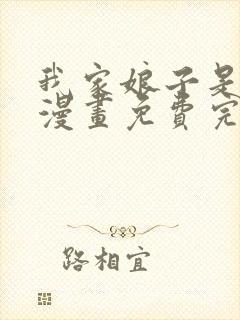 我家娘子是
漫畫免費完
路相宜